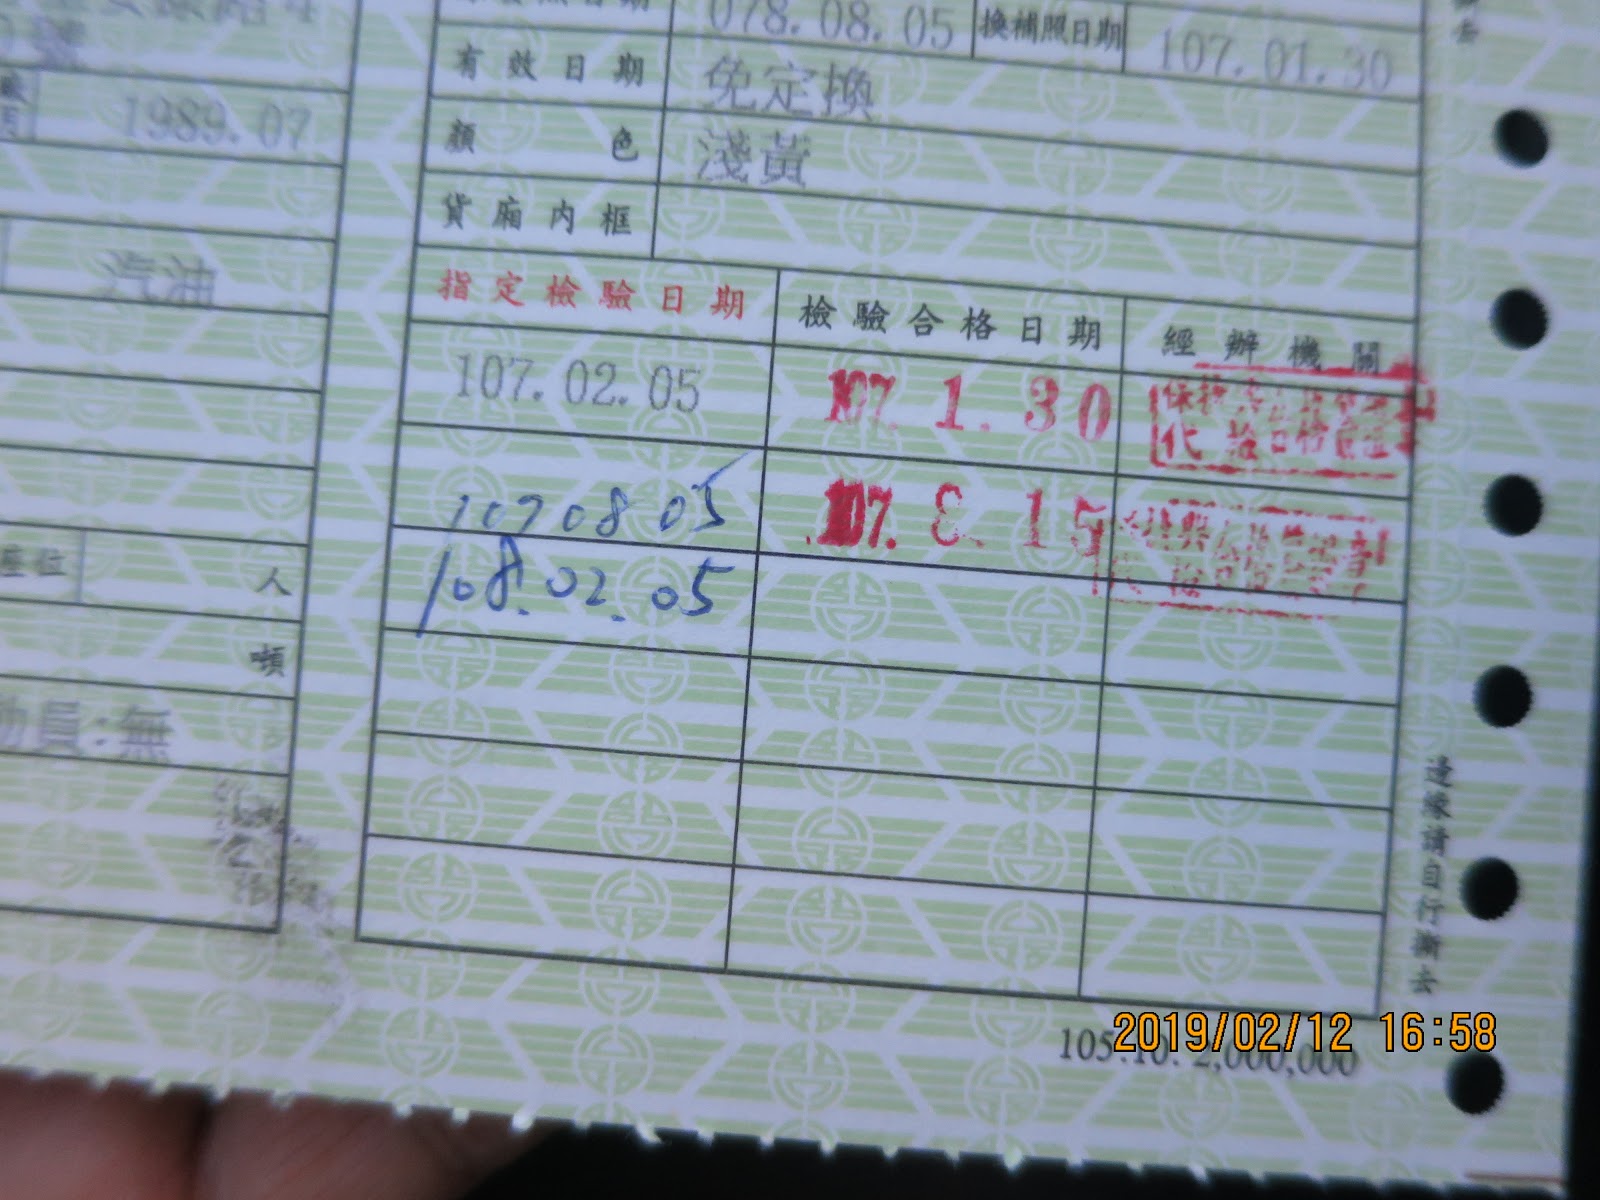 號
078.08.05 換補照日期 107.01.30
有效日期 免定換
1989.07
顏色 淺黃
貨廂內框
汽油
指定檢驗日期 檢驗合格日期 經辦機關
107.02.05 107. 1. 30
1070805 107. 8. 15
108.02.05
座位 人
噸
動員:無
邊緣請自行撕去
105.10. 2,000,000
2019/02/12 16:58